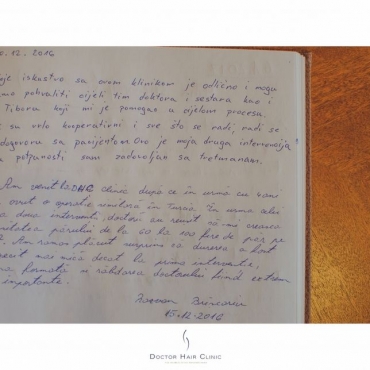 .12.2016
je iskustvo sa ovom klinikom je odlično i mogu
pohvaliti cijeli tim doktora i sestara kao i
Tiboru koji mi je pomogao u cijelom procesu.
su vrlo kooperativni i sve što se radi, radi se
dogovoru sa pacijentom. Ovo je moja druga intervencija
potpunosti sam zadovoljan sa tretmanom.
Am venit la DHC clinic după ce în urmă cu 2 ani
avut o operație nereușită în Turcia. În urma celei
a doua intervenții, doctorii au reușit să-mi crească
densitatea părului de la 60 la 100 fire de păr pe
Am rămas plăcut surprins că durerea a fost
mai mică decât la prima intervenție,
și răbdarea doctorului fiind extrem
importante.
15.12.2016
DOCTOR HAIR CLINIC